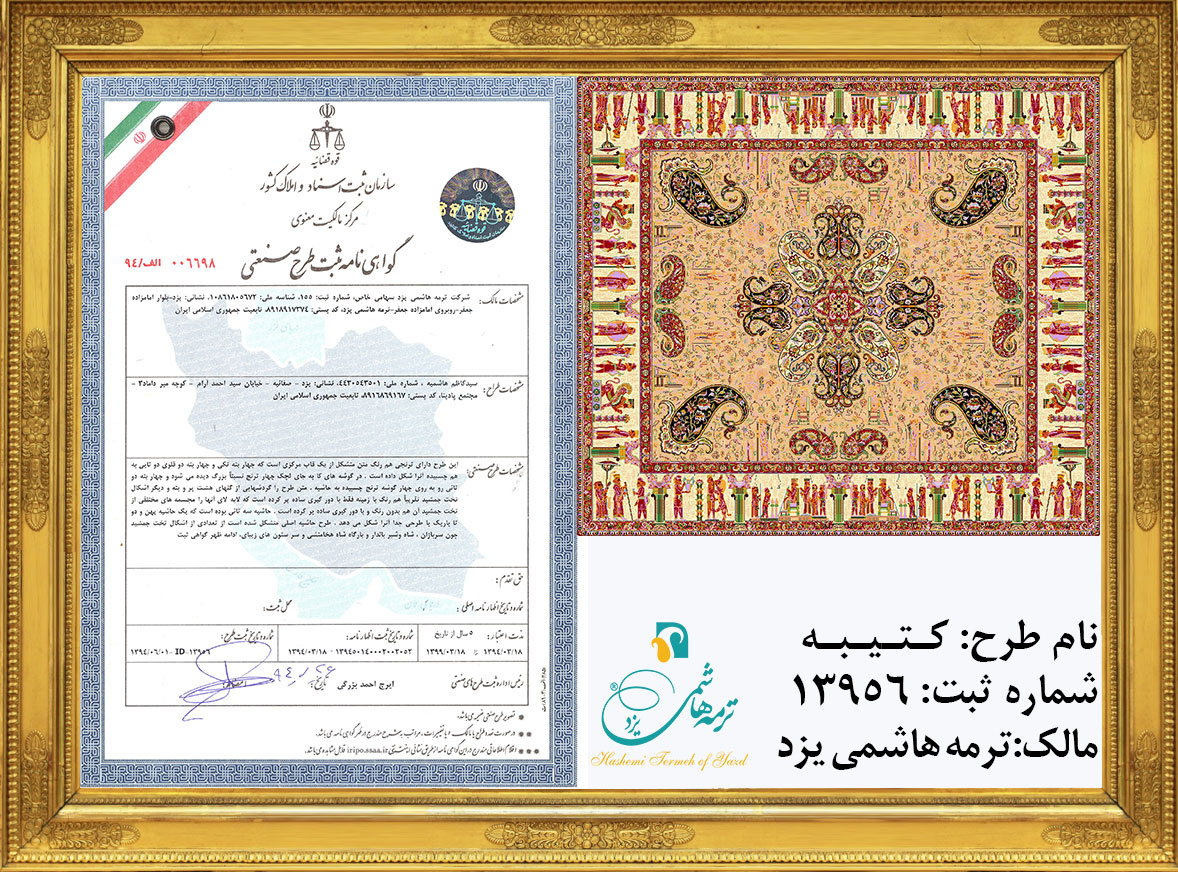 قوه قضائیه
سازمان ثبت اسناد و املاک کشور
مرکز مالکیت معنوی
گواهی نامه ثبت طرح صنعتی
۰۰۶۶۹۸ الف/۹۴
مشخصات مالک: شرکت ترمه هاشمی یزد سهامی خاص، شماره ثبت: ۱۵۵، شناسه ملی: ۱۰۸۶۱۸۰۵۶۷۲، نشانی: یزد-بلوار امامزاده
جعفر-روبروی امامزاده جعفر-ترمه هاشمی یزد، کد پستی: ۸۹۱۸۹۱۷۲۷۴، تابعیت جمهوری اسلامی ایران
مشخصات طراح: سیدکاظم هاشمیه ، شماره ملی: ۴۴۳۰۵۴۳۵۰۱، نشانی: یزد - صفائیه - خیابان سید احمد آرام - کوچه میر داماد۲ -
مجتمع پادینا، کد پستی: ۸۹۱۶۸۶۹۱۶۷، تابعیت جمهوری اسلامی ایران
مشخصات طرح صنعتی: این طرح دارای ترنجی هم رنگ متن متشکل از یک قاب مرکزی است که چهار بته تکی و چهار بته دو قلوی دو تایی به
هم چسبیده آنرا شکل داده است . در گوشه های کا به جای لچک چهار ترنج نسبتاً بزرگ دیده می شود و چهار بته دو
تائی رو به روی چهار گوشه ترنج چسبیده به حاشیه . متن طرح را گردشهایی از گلهای هشت پر و بته و دیگر اشکال
تخت جمشید تقریباً هم رنگ با زمینه فقط با دور گیری ساده پر کرده است که لابه لای آنها را مجسمه های مختلفی از
تخت جمشید آن هم بدون رنگ و با دور گیری ساده پر کرده است . حاشیه سه تائی بوده است که یک حاشیه پهن و دو
تا باریک با طرحی جدا آنرا شکل می دهد . طرح حاشیه اصلی متشکل شده است از تعدادی از اشکال تخت جمشید
چون سربازان ، شاه وشیر بالدار و بارگاه شاه هخامنشی و سر ستون های زیبای. ادامه ظهر گواهی ثبت
حق تقدم:
شماره و تاریخ اظهارنامه اصلی: محل ثبت:
مدت اعتبار: ۵ سال از تاریخ
۱۳۹۴/۰۳/۱۸ تا ۱۳۹۹/۰۳/۱۸
شماره و تاریخ ثبت اظهارنامه:
۱۳۹۴۵۰۱۴۰۰۰۲۰۰۲۰۵۲ - ۱۳۹۴/۰۳/۱۸
شماره و تاریخ ثبت طرح:
۱۳۹۵۶-ID -۱۳۹۴/۰۶/۰۱
رئیس اداره ثبت طرح های صنعتی ایرج احمد بزرگی تاریخ امضاء
تصویر طرح صنعتی ضمیمه می باشد.
در صورت تعدد طراح یا مالک و یا تغییرات، مراتب به شرح مندرج در ظهر گواهی نامه می باشد.
اقلام اطلاعاتی مندرج در این گواهی نامه از طریق نشانی اینترنتی iripo.ssaa.ir قابل مشاهده می باشد.
نام طرح: کـتـیـبـه
شماره ثبت: ۱۳۹۵۶
مالک:ترمه هاشمی یزد
ترمه هاشمی
یزد
®
Hashemi Termeh of Yazd